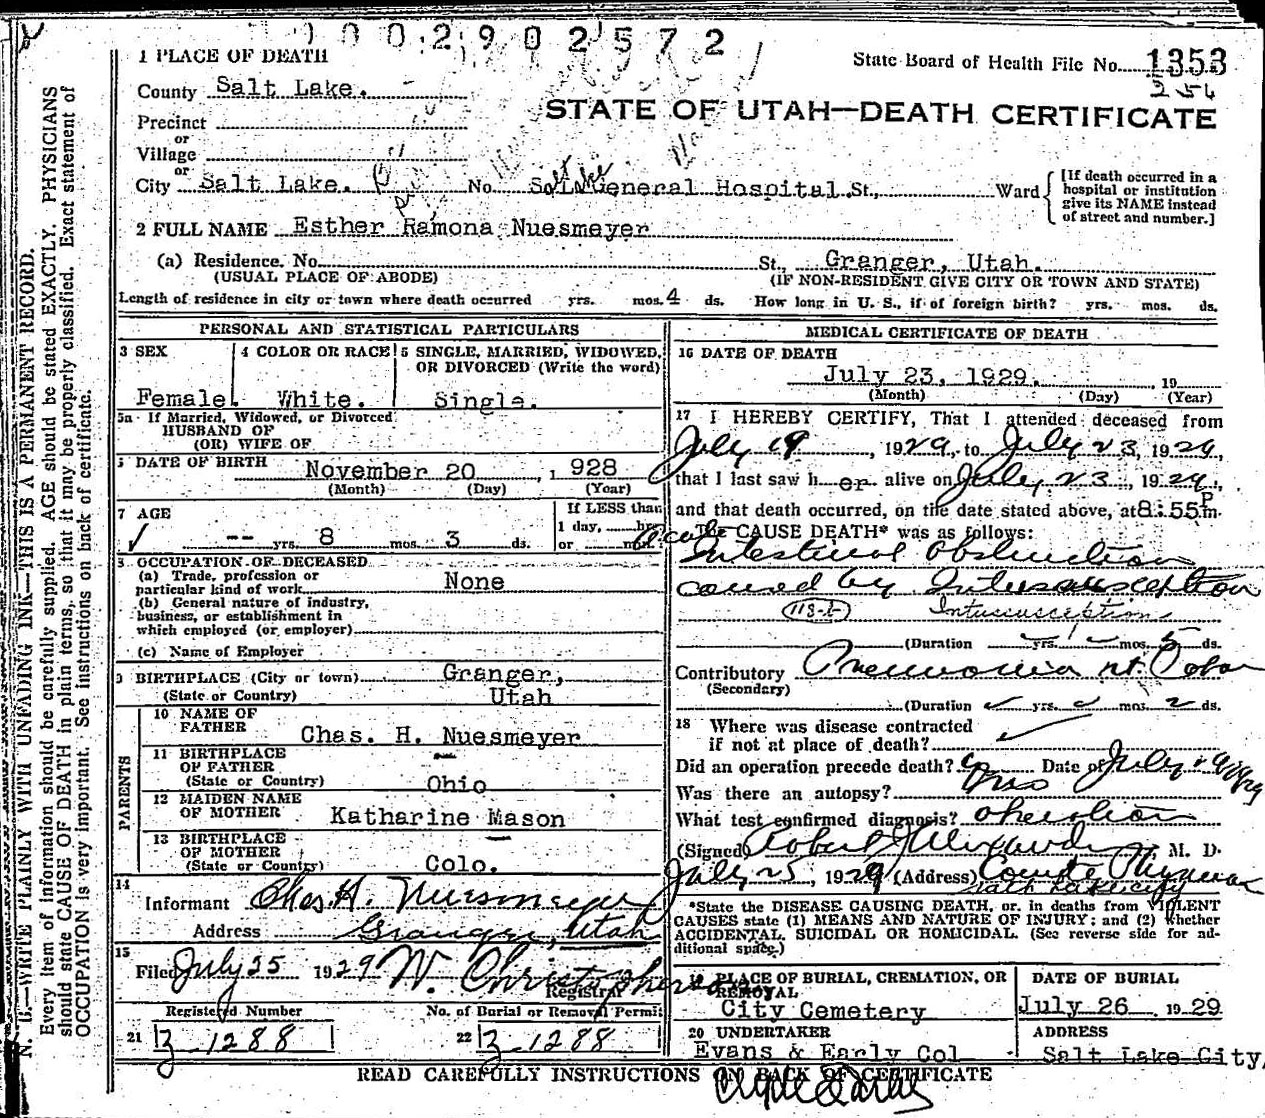 1002902572
1 PLACE OF DEATH
State Board of Health File No. 1353
254
County Salt Lake.
STATE OF UTAH—DEATH CERTIFICATE
Precinct
or
Village
or
City Salt Lake. No. Salt Lake General Hospital. St., Ward
[If death occurred in a hospital or institution give its NAME instead of street and number.]
2 FULL NAME Esther Ramona Nuesmeyer
(a) Residence. No. St., Granger, Utah.
(USUAL PLACE OF ABODE) (IF NON-RESIDENT GIVE CITY OR TOWN AND STATE)
Length of residence in city or town where death occurred yrs. mos. 4 ds. How long in U. S., if of foreign birth? yrs. mos. ds.
PERSONAL AND STATISTICAL PARTICULARS
3 SEX 4 COLOR OR RACE 5 SINGLE, MARRIED, WIDOWED,
OR DIVORCED (Write the word)
Female White. Single.
5a If Married, Widowed, or Divorced
HUSBAND OF
(OR) WIFE OF
6 DATE OF BIRTH November 20, 1928
(Month) (Day) (Year)
7 AGE If LESS than
1 day, hrs.
-- yrs. 8 mos. 3 ds. or min.
8 OCCUPATION OF DECEASED
(a) Trade, profession or
particular kind of work None
(b) General nature of industry,
business, or establishment in
which employed (or employer)
(c) Name of Employer
9 BIRTHPLACE (City or town) Granger,
(State or Country) Utah
PARENTS
10 NAME OF
FATHER Chas. H. Nuesmeyer
11 BIRTHPLACE
OF FATHER
(State or Country) Ohio
12 MAIDEN NAME
OF MOTHER Katharine Mason
13 BIRTHPLACE
OF MOTHER
(State or Country) Colo.
14
Informant Chas. H. Nuesmeyer
Address Granger, Utah
15
Filed July 25 1929 W. Christopherson
Registrar
Registered Number No. of Burial or Removal Permit
21 Z-1288 22 Z-1288
MEDICAL CERTIFICATE OF DEATH
16 DATE OF DEATH
July 23, 1929. 19
(Month) (Day) (Year)
17 I HEREBY CERTIFY, That I attended deceased from
July 19, 1929, to July 23, 1929,
that I last saw her alive on July 23, 1929,
and that death occurred, on the date stated above, at 8:55 P m.
The CAUSE DEATH* was as follows:
Acute
Intestinal Obstruction
caused by Intussusception
Intussusception
(Duration yrs. mos. 5 ds.
Contributory Pneumonia rt.
(Secondary)
(Duration yrs. mos. 2 ds.
18 Where was disease contracted
if not at place of death?
Did an operation precede death? yes Date of July 19 1929
Was there an autopsy? no
What test confirmed diagnosis? operation
(Signed) Robert J Alexander M. D.
July 25, 1929 (Address)
Salt Lake City
*State the DISEASE CAUSING DEATH, or in deaths from VIOLENT
CAUSES state (1) MEANS AND NATURE OF INJURY; and (2) whether
ACCIDENTAL, SUICIDAL OR HOMICIDAL. (See reverse side for ad-
ditional space.)
19 PLACE OF BURIAL, CREMATION, OR
REMOVAL DATE OF BURIAL
City Cemetery July 26, 1929
20 UNDERTAKER ADDRESS
Evans & Early Col Salt Lake City,
READ CAREFULLY INSTRUCTIONS ON BACK OF CERTIFICATE
N. B.—WRITE PLAINLY WITH UNFADING INK—THIS IS A PERMANENT RECORD.
Every item of information should be carefully supplied. AGE should be stated EXACTLY. PHYSICIANS
should state CAUSE OF DEATH in plain terms, so that it may be properly classified. Exact statement of
OCCUPATION is very important. See instructions on back of certificate.